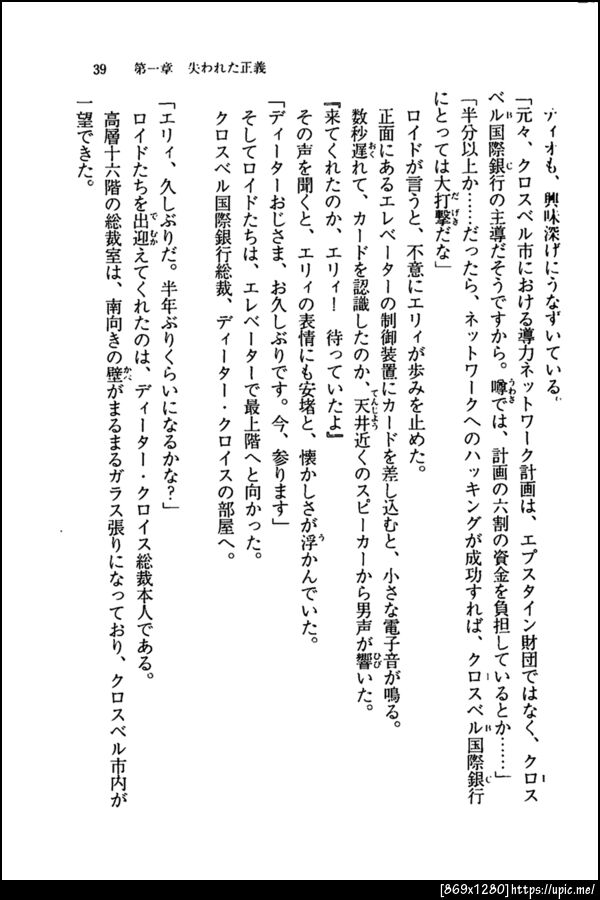 39　第一章　失われた正義
ティオも、興味深げにうなずいている。
「元々、クロスベル市における導力ネットワーク計画は、エプスタイン財団ではなく、クロス
ベル国際銀行の主導だそうですから。噂では、計画の六割の資金を負担しているとか……」
「半分以上か……だったら、ネットワークへのハッキングが成功すれば、クロスベル国際銀行
にとっては大打撃だな」
ロイドが言うと、不意にエリィが歩みを止めた。
正面にあるエレベーターの制御装置にカードを差し込むと、小さな電子音が鳴る。
数秒遅れて、カードを認識したのか、天井近くのスピーカーから男声が響いた。
『来てくれたのか、エリィ！　待っていたよ』
その声を聞くと、エリィの表情にも安堵と、懐かしさが浮かんでいた。
「ディーターおじさま、お久しぶりです。今、参ります」
そしてロイドたちは、エレベーターで最上階へと向かった。
クロスベル国際銀行総裁、ディーター・クロイスの部屋へ。
「エリィ、久しぶりだ。半年ぶりくらいになるかな？」
ロイドたちを出迎えてくれたのは、ディーター・クロイス総裁本人である。
高層十六階の総裁室は、南向きの壁がまるまるガラス張りになっており、クロスベル市内が
一望できた。
[869x1280]https://upic.me/